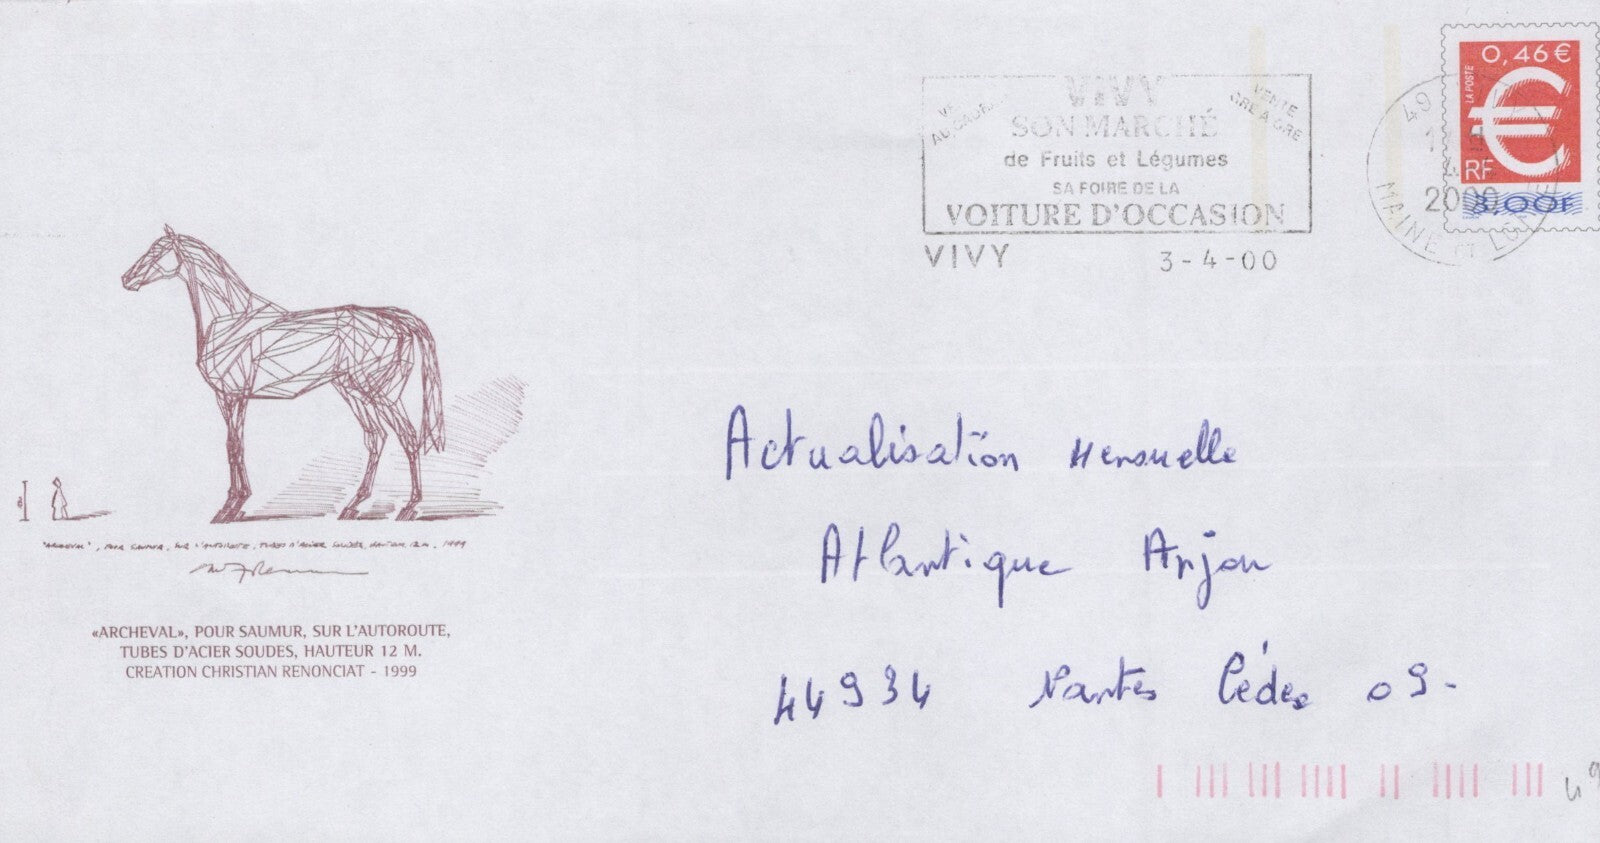 VIVY
SON MARCHÉ
de Fruits et Légumes
SA FOIRE DE LA
VOITURE D'OCCASION
VENTE
GRE A GRE
AU CADRAN
VIVY 3-4-00
49
2000
MAINE ET LOIRE
LA POSTE
0,46 €
€
RF
3,00F
Actualisation Mensuelle
Atlantique Anjou
44934 Nantes Cédex 09-
"ARCHEVAL", POUR SAUMUR, SUR L'AUTOROUTE, TUBES D'ACIER SOUDES, HAUTEUR 12 M. 1999
«ARCHEVAL», POUR SAUMUR, SUR L'AUTOROUTE,
TUBES D'ACIER SOUDES, HAUTEUR 12 M.
CREATION CHRISTIAN RENONCIAT - 1999
49